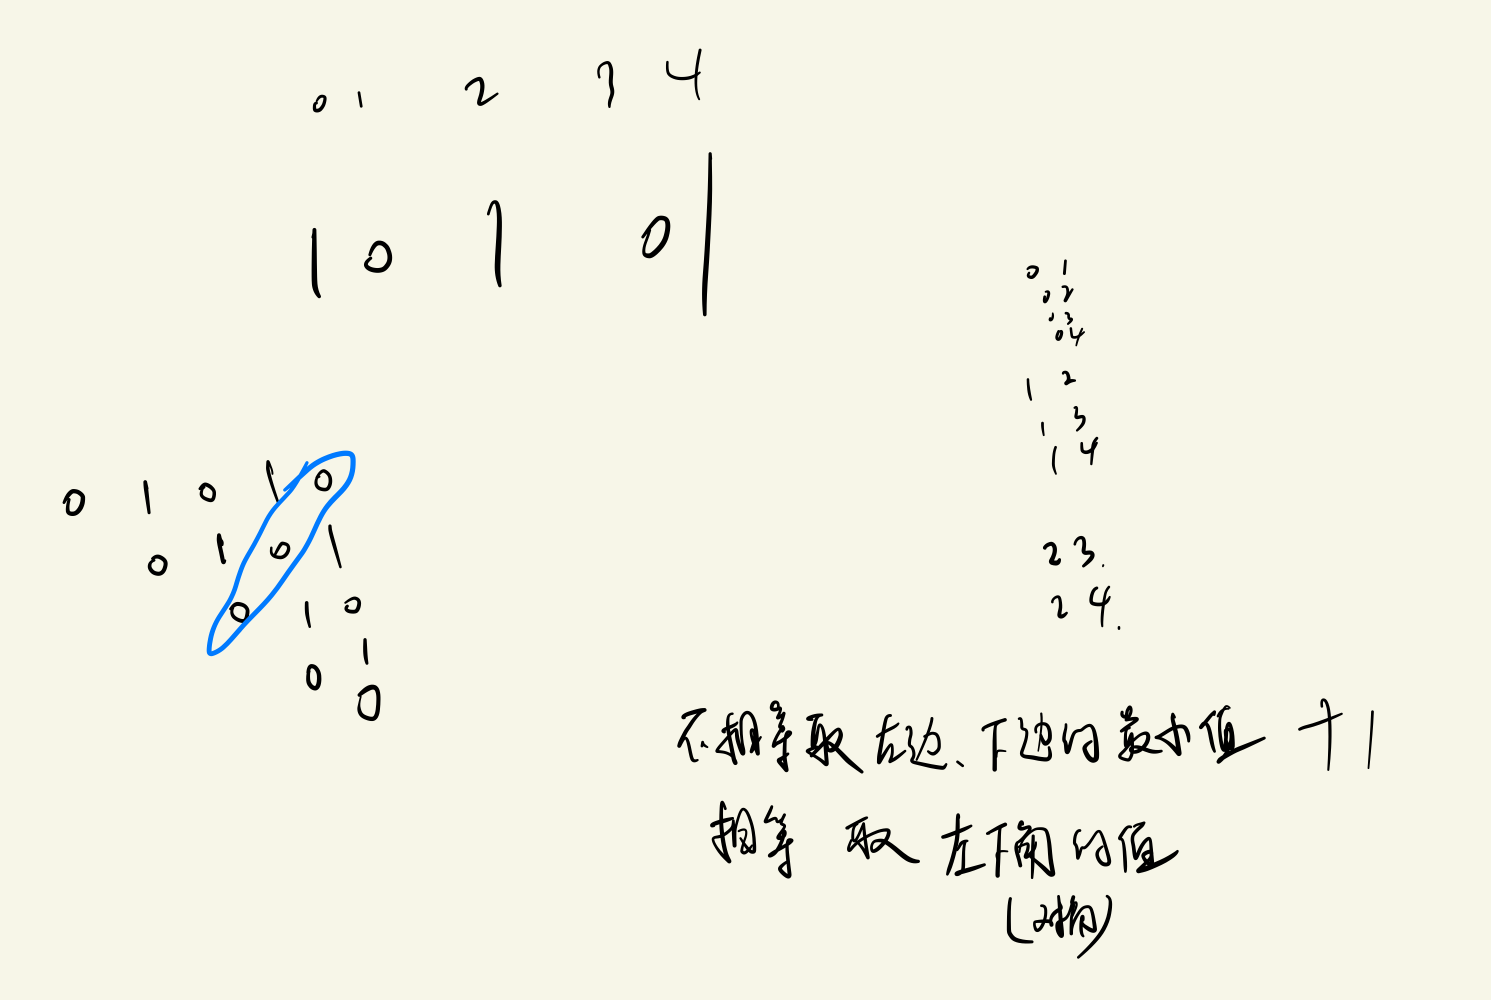 0 1 2 3 4
1 0 1 0 1
0 1
0 2
0 3
0 4
1 2
1 3
1 4
2 3.
2 4.
0 1 0 1 0
0 1 0 1
0 1 0
0 1
0
不相等取左边、下边的最小值 +1
相等 取 左下角的值
(对角)